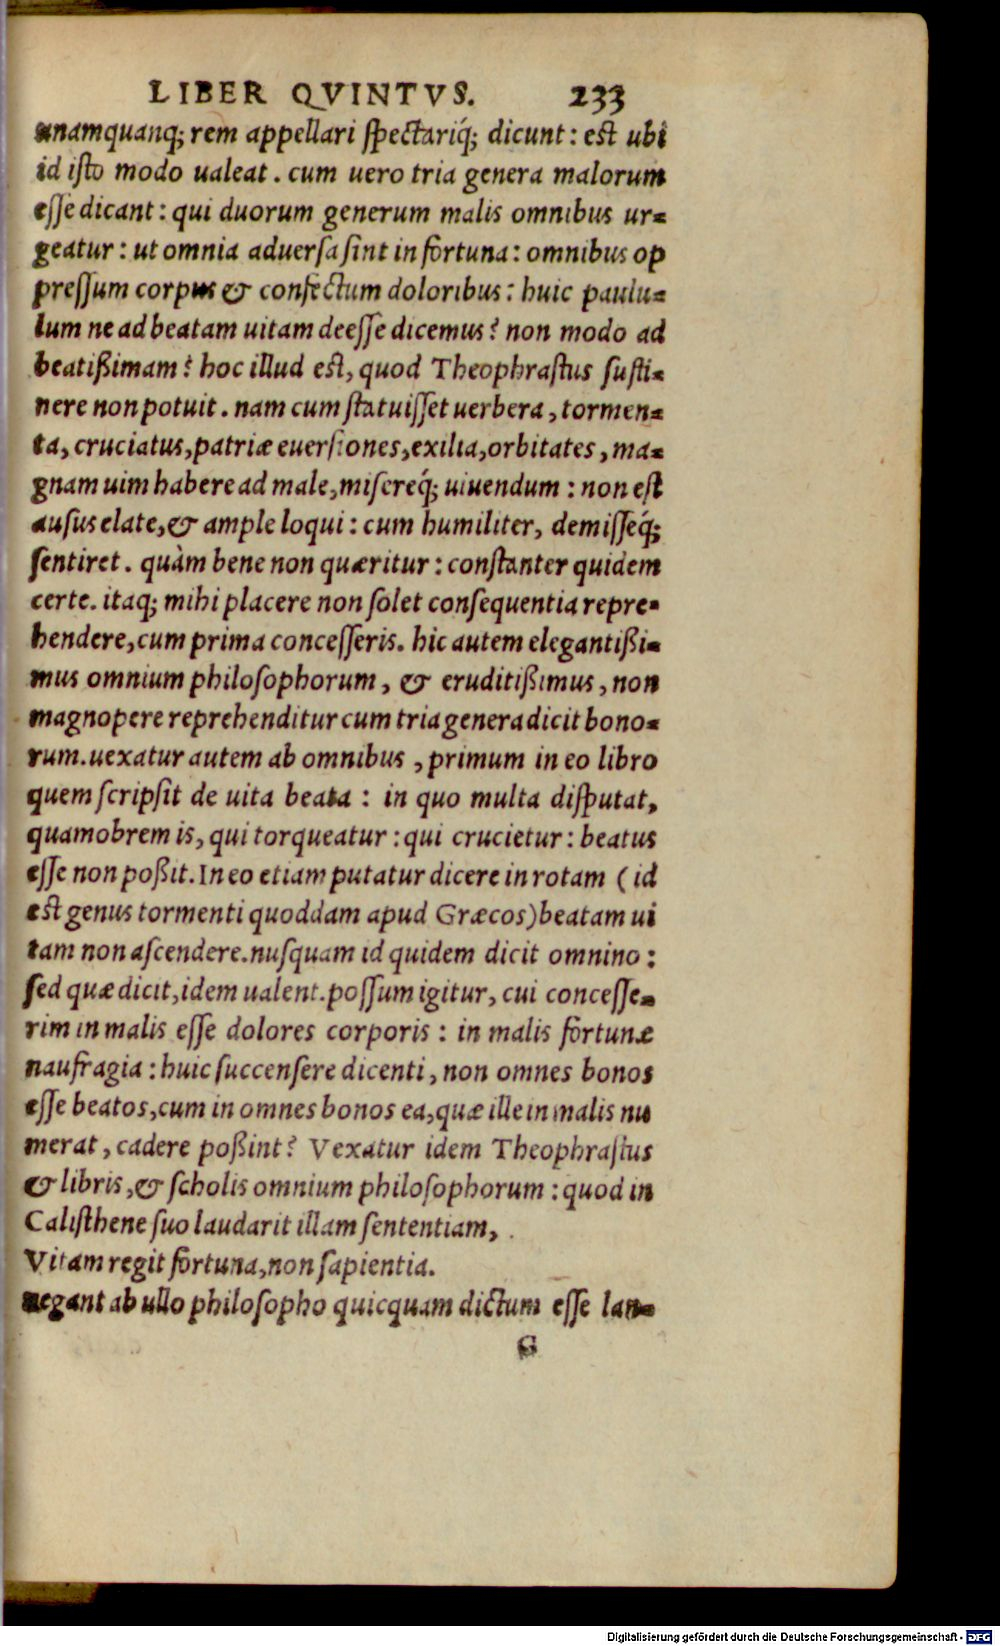 LIBER QVINTVS. 233
unamquanq; rem appellari spectariq́; dicunt: est ubi
id isto modo ualeat. cum uero tria genera malorum
esse dicant: qui duorum generum malis omnibus ur-
geatur: ut omnia aduersa sint in fortuna: omnibus op
pressum corpus & confectum doloribus: huic paulu-
lum ne ad beatam uitam deesse dicemus? non modo ad
beatißimam? hoc illud est, quod Theophrastus susti-
nere non potuit. nam cum statuisset uerbera, tormen-
ta, cruciatus, patriæ euersiones, exilia, orbitates, ma-
gnam uim habere ad male, misereq́; uiuendum: non est
ausus elate, & ample loqui: cum humiliter, demisseq́;
sentiret. quàm bene non quæritur: constanter quidem
certe. itaq; mihi placere non solet consequentia repre-
hendere, cum prima concesseris. hic autem elegantißi-
mus omnium philosophorum, & eruditißimus, non
magnopere reprehenditur cum tria genera dicit bono-
rum. uexatur autem ab omnibus, primum in eo libro
quem scripsit de uita beata: in quo multa disputat,
quamobrem is, qui torqueatur: qui crucietur: beatus
esse non poßit. In eo etiam putatur dicere in rotam (id
est genus tormenti quoddam apud Græcos) beatam ui
tam non ascendere. nusquam id quidem dicit omnino:
sed quæ dicit, idem ualent. possum igitur, cui concesse-
rim in malis esse dolores corporis: in malis fortunæ
naufragia: huic succensere dicenti, non omnes bonos
esse beatos, cum in omnes bonos ea, quæ ille in malis nu
merat, cadere poßint? Vexatur idem Theophrastus
& libris, & scholis omnium philosophorum: quod in
Calisthene suo laudarit illam sententiam,
Vitam regit fortuna, non sapientia.
negant ab ullo philosopho quicquam dictum esse lan-
G
Digitalisierung gefördert durch die Deutsche Forschungsgemeinschaft - DFG